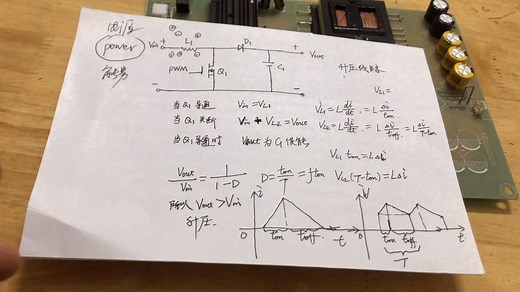 power
Vin +
L1
D1
+
Vout
PWM
Q1
C1
-
-
升压
VL1=
当Q1导通 Vin=VL1
当Q1关断 Vin+VL2=Vout
当Q1导通时 Vout为C1供能
VL1=L di/dt=L Δi/ton
VL2=L di/dt=L Δi/toff=L Δi/T-ton
VL1 ton=LΔi
VL2(T-ton)=LΔi
Vout/Vin=1/1-D
D=ton/T=f ton
所以 Vout>Vin
升压.
i
0 ton toff t
0 ton toff t
T